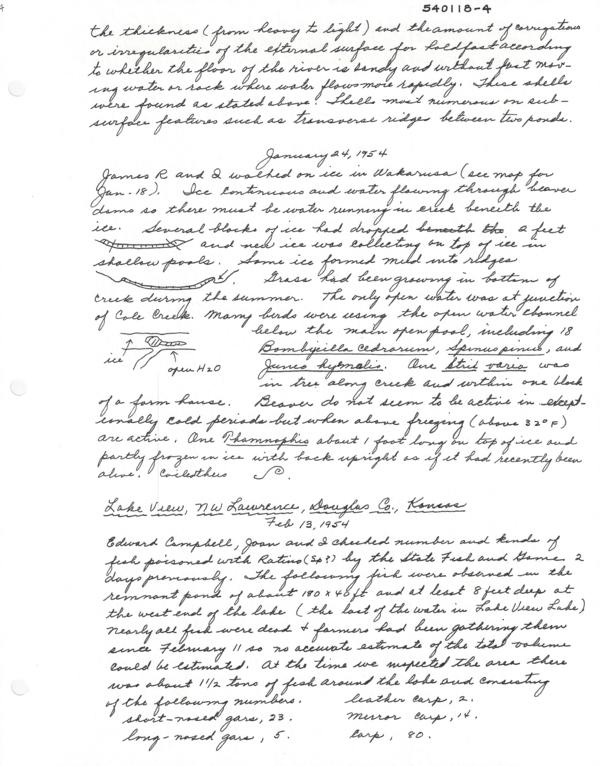 540118-4
the thickness (from heavy to light) and the amount of corrugations
or irregularities of the external surface for holdfast according
to whether the floor of the river is sandy and without fast mov-
ing water or rock where water flows more rapidly. These shells
were found as stated above. Shells most numerous on sub-
surface features such as transverse ridges between two ponds.
January 24, 1954
James R and I walked on ice in Wakarusa (see map for
Jan. 18). Ice continuous and water flowing through beaver
dams so there must be water running in creek beneath the
ice. Several blocks of ice had dropped beneath the 2 feet
and new ice was collecting on top of ice in
shallow pools. Some ice formed mild into ridges
Grass had been growing in bottom of
creek during the summer. The only open water was at junction
of Cole Creek. Many birds were using the open water channel
below the main open pool, including 18
Bombycilla cedrorum, Spinus pinus, and
Junco hyemalis. One Strix varia was
ice
open H2O
in tree along creek and within one block
of a farm house. Beaver do not seem to be active in except-
ionally cold periods but when above freezing (above 32°F)
are active. One Thamnophis about 1 foot long on top of ice and
partly frozen in ice with back upright as if it had recently been
alive. Coiled thus
Lake View, NW Lawrence, Douglas Co., Kansas
Feb 13, 1954
Edward Campbell, Joan and I checked number and kinds of
fish poisoned with Ratino (Sp?) by the State Fish and Game 2
days previously. The following fish were observed in the
remnant pond of about 180 x 40 ft and at least 8 feet deep at
the west end of the lake (the last of the water in Lake View Lake)
Nearly all fish were dead & farmers had been gathering them
since February 11 so no accurate estimate of the total volume
could be estimated. At the time we inspected the area there
was about 1 1/2 tons of fish around the lake and consisting
of the following numbers. leather carp, 2.
short-nosed gars, 23. mirror carp, 14.
long-nosed gars, 5. carp, 80.